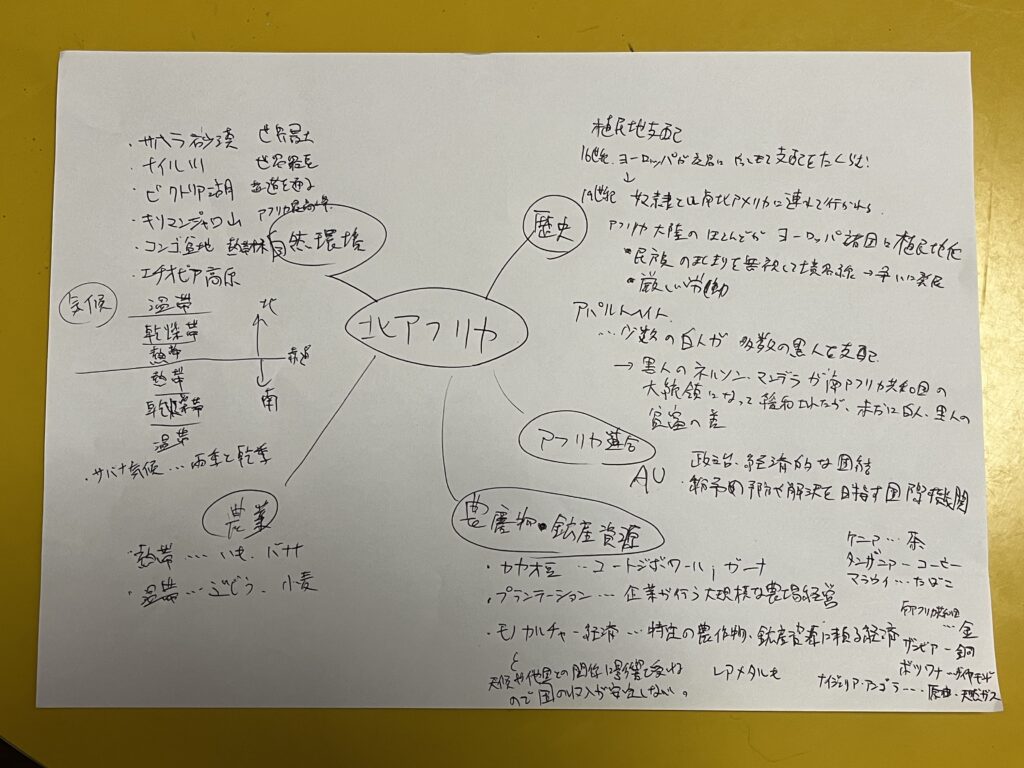 北アフリカ
自然環境
・サハラ砂漠 世界最大
・ナイル川 世界最長
・ビクトリア湖 赤道を通る
・キリマンジャロ山 アフリカ最高峰
・コンゴ盆地 熱帯林
・エチオピア高原
気候
温帯
乾燥帯
熱帯
熱帯
乾燥帯
温帯
北
赤道
南
サバナ気候…雨季と乾季
農業
・熱帯…いも、バナナ
・温帯…ぶどう、小麦
歴史
植民地支配
16世紀 ヨーロッパが
支配をたくらむ
19世紀 奴隷として南北アメリカに連れて行かれる
アフリカ大陸のほとんどがヨーロッパ諸国に植民地化
・民族のまとまりを無視して境界線→争いに発展
・厳しい労働
アパルトヘイト
…少数の白人が多数の黒人を支配
→黒人のネルソン・マンデラが南アフリカ共和国の
大統領になって緩和されたが、未だに白人、黒人の
貧富の差
アフリカ連合
AU
政治、経済的な団結
・紛争の予防や解決を目指す国際機関
農産物・鉱産資源
・カカオ豆…コートジボワール、ガーナ
・プランテーション…企業が行う大規模な農場経営
・モノカルチャー経済…特定の農作物、鉱産資源に頼る経済
天候や他国との関係に影響を受ける
ので国の収入が安定しない。
レアメタルも
ケニア…茶
タンザニア…コーヒー
マラウイ…たばこ
南アフリカ共和国
…金
ザンビア…銅
ボツワナ…ダイヤモンド
ナイジェリア・アンゴラ…原油・天然ガス